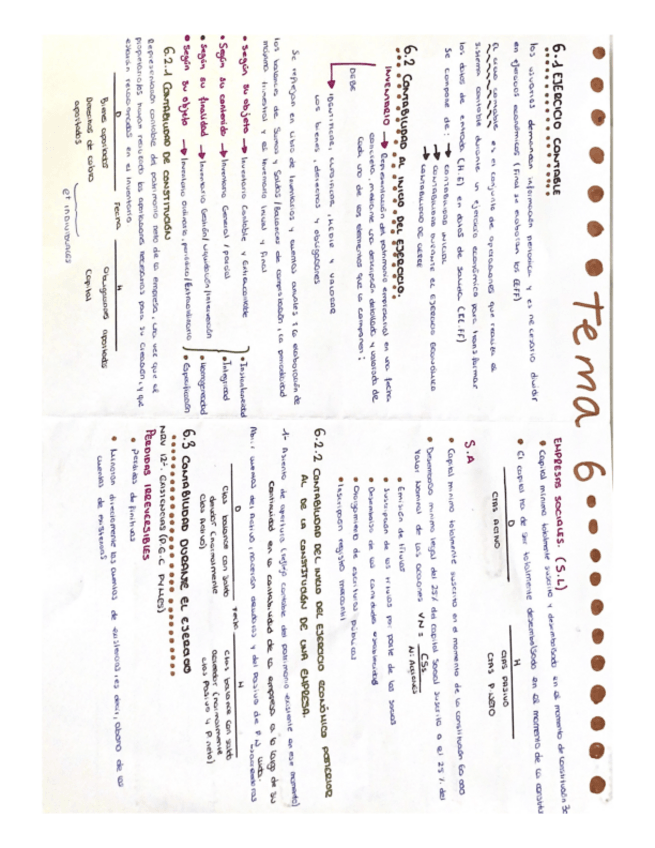 tema 6
6.1 EJERCICIO CONTABLE
los usuarios demandan información periódica y es necesario dividir
en ejercicios económicos (final se elaboran los EEFF)
El ciclo contable es el conjunto de operaciones que realiza el
sistema contable durante un ejercicio económico para transformar
los datos de entrada (H.E) en datos de salida (EE.FF)
Se compone de: → contabilidad inicial
→ contabilidad durante el ejercicio económico
→ contabilidad de cierre
6.2 CONTABILIDAD AL INICIO DEL EJERCICIO.
INVENTARIO → Representación del patrimonio empresarial en una fecha
concreta, mediante una descripción detallada y valorada de
cada uno de los elementos que la componen;
DEBE
→ identificar, clasificar, medir y valorar
los bienes, derechos y obligaciones
Se reflejan en Libro de Inventarios y cuentas anuales y la elaboración de
los balances de Sumas y Saldos / Balances de comprobación, la periodicidad
mínima trimestral y el inventario inicial y final
• Según su objeto → Inventario Contable y Extracontable
• Según su contenido → Inventario General / parcial
• Según su finalidad → Inventario Gestión / Liquidación / intervención
• Según su objeto → Inventario Ordinario, periódico / Extraordinario
• Instantaneidad
• Integridad
• Homogeneidad
• Especificación
6.2.1 CONTABILIDAD DE CONSTITUCIÓN
Representación contable del patrimonio neto de la empresa, una vez que el
propietario/os hayan realizado las aportaciones necesarias para su creación, y que
estarán relacionadas en el inventario
D Fecha H
Bienes aportados Obligaciones aportadas
Derechos de cobro Capital
aportados
et individuales
EMPRESAS SOCIALES. (S.L)
• Capital mínimo totalmente suscrito y desembolsado en el momento de constitución 3
• El capital ha de ser totalmente desembolsado en el momento de la
D H
CTAS ACTIVO CTAS PASIVO
CTAS P.NETO
S.A
• Capital mínimo totalmente suscrito en el momento de la constitución 60 000
• Desembolso mínimo legal del 25% del capital social suscrito o el 25% del
Valor Nominal de las acciones VN = CSS
Nº Acciones
• Emisión de títulos
• Suscripción de los títulos por parte de los socios
• Desembolso de las cantidades
• Otorgamiento de escritura pública
• Inscripción registro mercantil
6.2.2 CONTABILIDAD DEL INICIO DEL EJERCICIO ECONÓMICO POSTERIOR
AL DE LA CONSTITUCIÓN DE UNA EMPRESA.
-1- Asiento de apertura (reflejo contable del patrimonio existente en ese momento)
Continuidad en la contabilidad de la empresa a lo largo de su vida.
cuentas del Activo, nacerán deudoras y del Pasivo de P.N acreedoras
D Fecha H
Ctas balance con saldo Ctas balance con saldo
deudor (normalmente acreedor (normalmente
ctas Activo) ctas Pasivo y P.neto)
6.3 CONTABILIDAD DURANTE EL EJERCICIO
NRV 12ª. EXISTENCIAS (P.G.C PYMES)
PÉRDIDAS IRREVERSIBLES
• Pérdidas definitivas
• Minoran directamente las cuentas de existencias, es decir, abono de las
cuentas de existencias